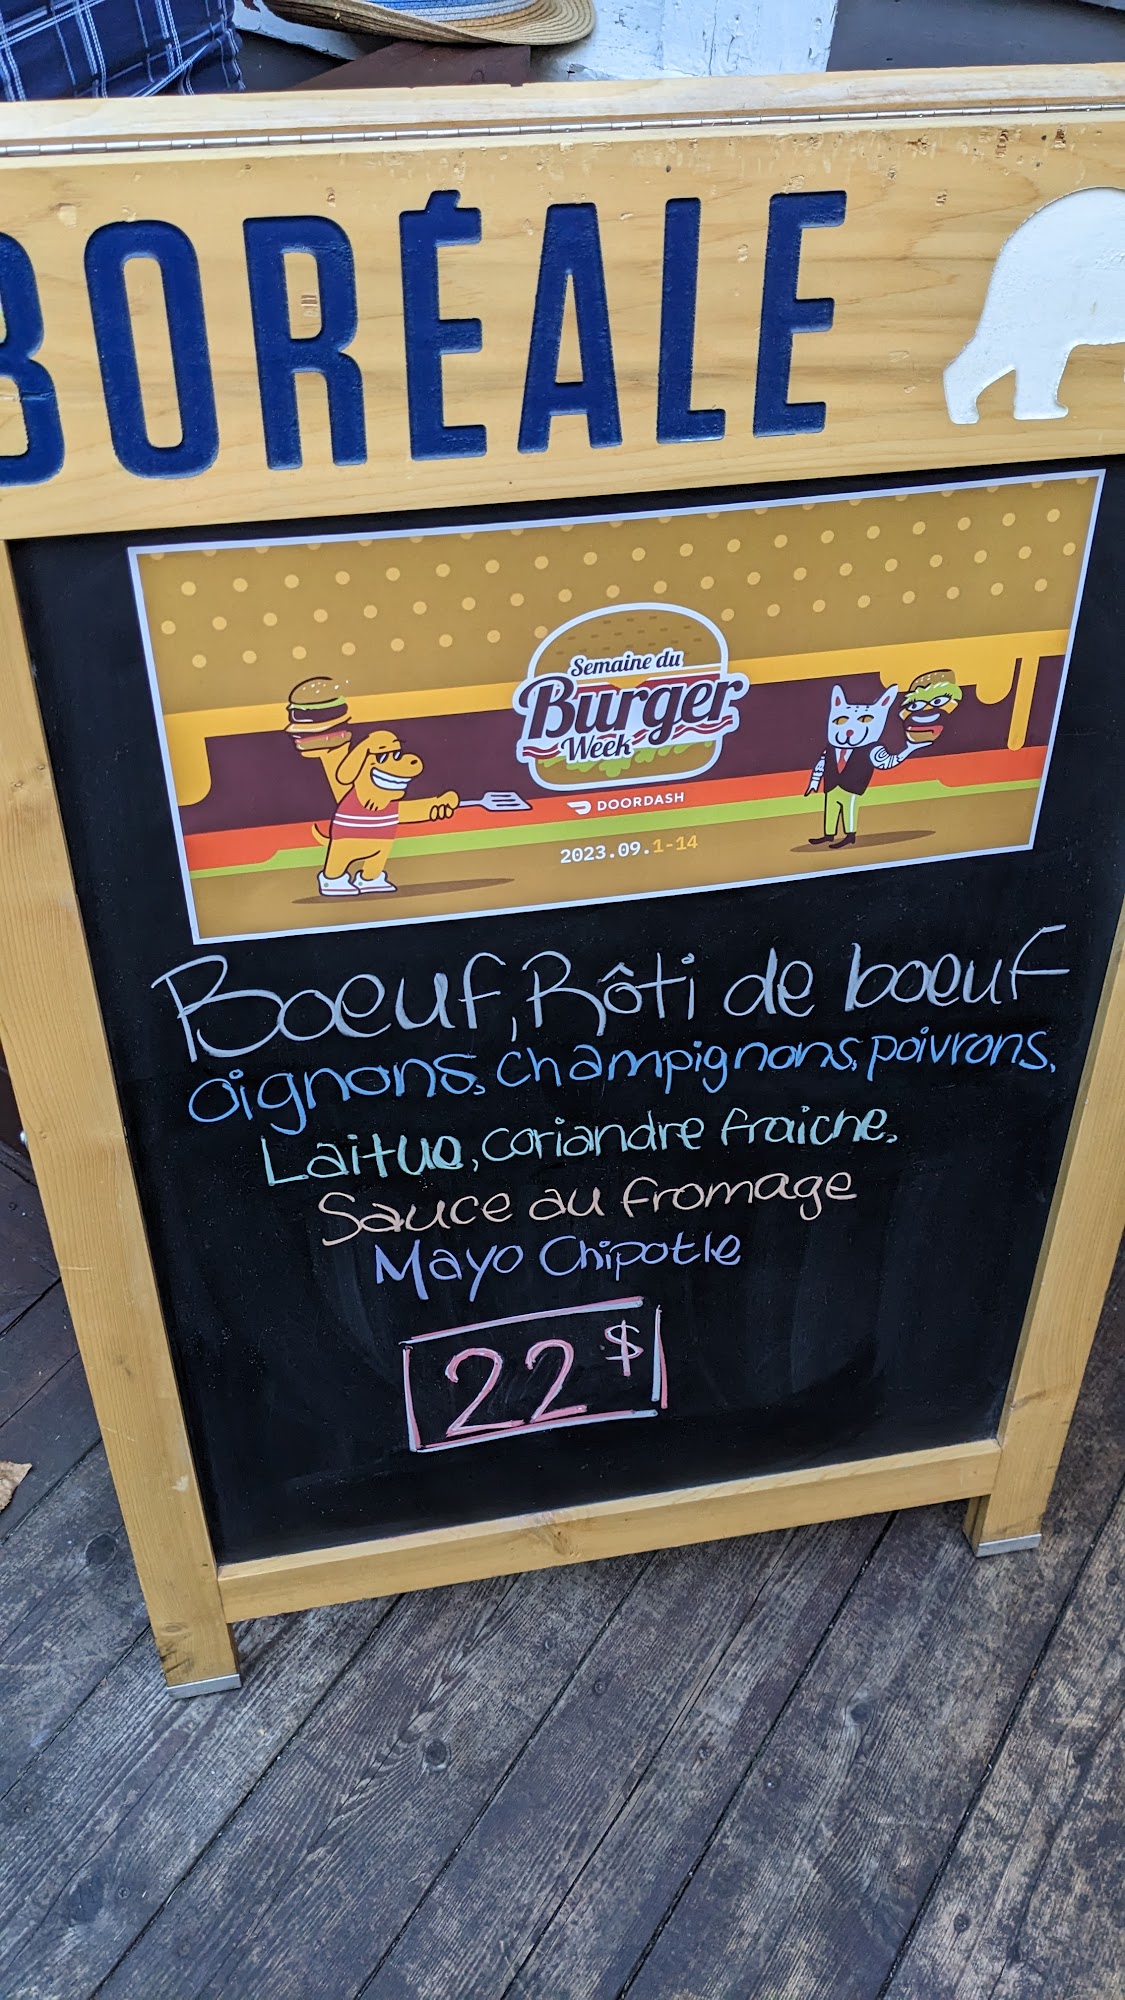 BORÉALE
Semaine du
Burger
Week
DOORDASH
2023.09.1-14
Boeuf, Rôti de boeuf
oignons, champignons, poivrons,
Laitue, coriandre fraiche,
Sauce au fromage
Mayo Chipotle
22$